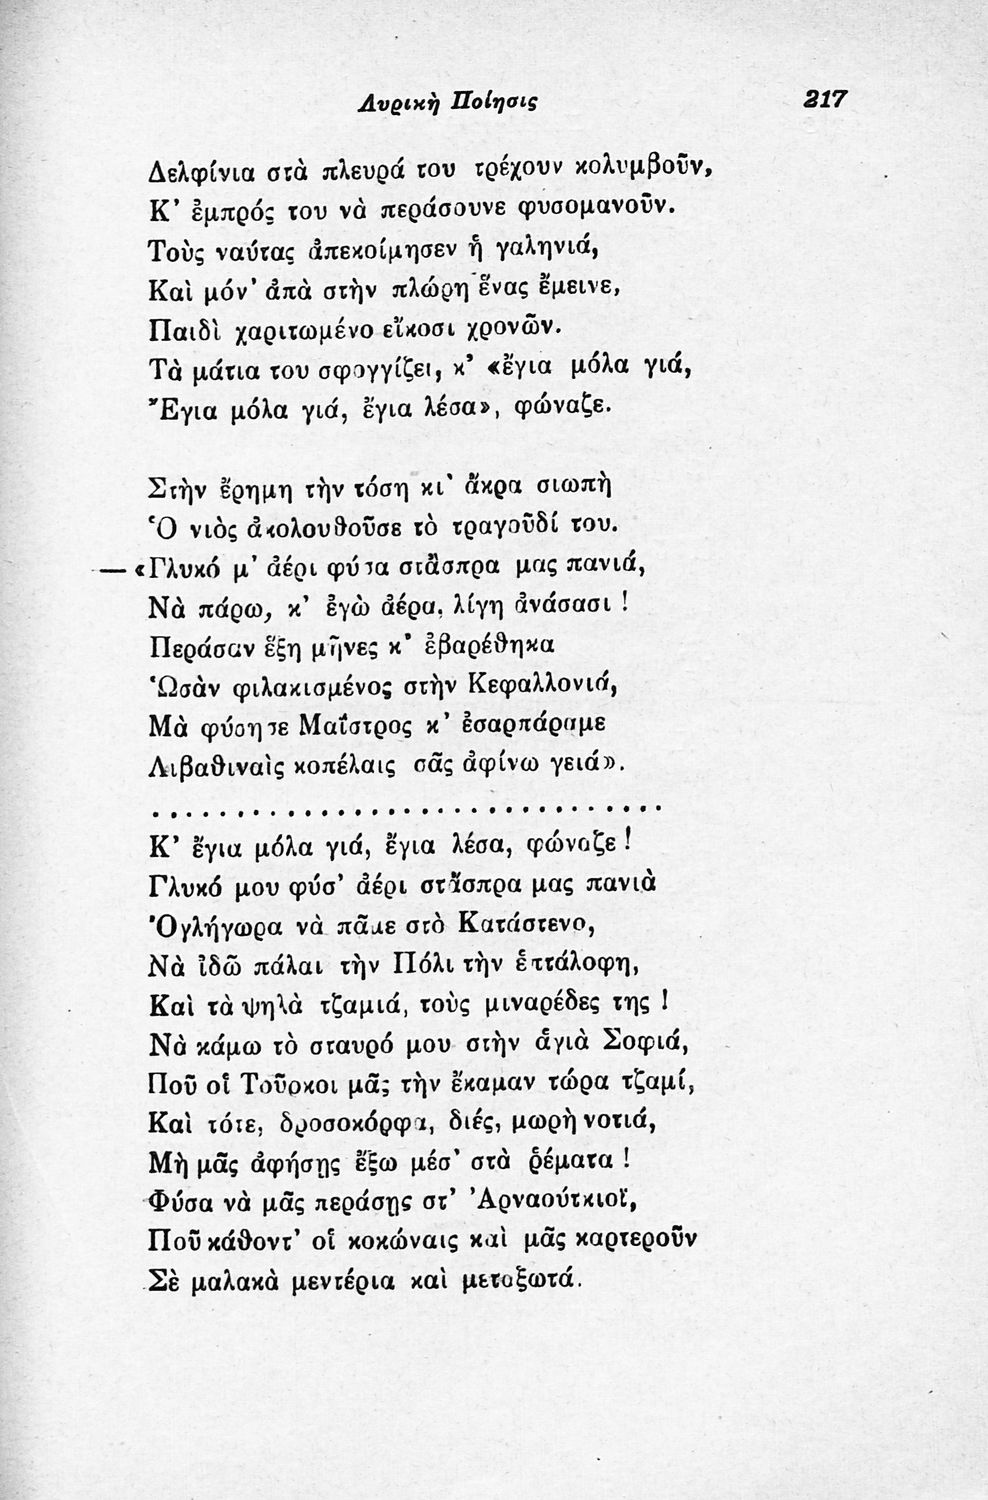 Λυρικὴ Ποίησις 217
Δελφίνια στὰ πλευρά του τρέχουν κολυμβοῦν,
Κ’ ἐμπρός του νὰ περάσουνε φυσομανοῦν.
Τοὺς ναύτας ἀπεκοίμησεν ἡ γαληνιά,
Καὶ μόν’ ἀπὰ στὴν πλώρη ἕνας ἔμεινε,
Παιδὶ χαριτωμένο εἴκοσι χρονῶν.
Τὰ μάτια του σφογγίζει, κ’ «ἔγια μόλα γιά,
Ἔγια μόλα γιά, ἔγια λέσα», φώναζε.
Στὴν ἔρημη τὴν τόση κι’ ἄκρα σιωπὴ
Ὁ νιὸς ἀκολουθοῦσε τὸ τραγοῦδί του.
— «Γλυκό μ’ ἀέρι φύσα στἄσπρα μας πανιά,
Νὰ πάρω, κ’ ἐγὼ ἀέρα, λίγη ἀνάσασι !
Περάσαν ἕξη μῆνες κ’ ἐβαρέθηκα
Ὡσὰν φιλακισμένος στὴν Κεφαλλονιά,
Μὰ φύσησε Μαΐστρος κ’ ἐσαρπάραμε
Λιβαθιναὶς κοπέλαις σᾶς ἀφίνω γειά».
. . . . . . . . . . . . . . . . . . . . . . . . . . . . . .
Κ’ ἔγια μόλα γιά, ἔγια λέσα, φώναζε !
Γλυκό μου φύσ’ ἀέρι στἄσπρα μας πανιὰ
Ὀγλήγωρα νὰ πᾶμε στὸ Κατάστενο,
Νὰ ἰδῶ πάλαι τὴν Πόλι τὴν ἑπτάλοφη,
Καὶ τὰ ψηλὰ τζαμιά, τοὺς μιναρέδες της !
Νὰ κάμω τὸ σταυρό μου στὴν ἁγιὰ Σοφιά,
Ποῦ οἱ Τοῦρκοι μᾶς τὴν ἔκαμαν τώρα τζαμί,
Καὶ τότε, δροσοκόρφα, διές, μωρὴ νοτιά,
Μὴ μᾶς ἀφήσῃς ἔξω μέσ’ στὰ ῥέματα !
Φύσα νὰ μᾶς περάσῃς στ’ Ἀρναούτκιοϊ,
Ποῦ κάθοντ’ οἱ κοκώναις καὶ μᾶς καρτεροῦν
Σὲ μαλακὰ μεντέρια καὶ μεταξωτά.